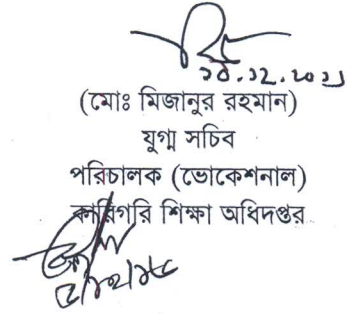 ২৮.১২.২০২১
(মোঃ মিজানুর রহমান)
যুগ্ম সচিব
পরিচালক (ভোকেশনাল)
কারিগরি শিক্ষা অধিদপ্তর